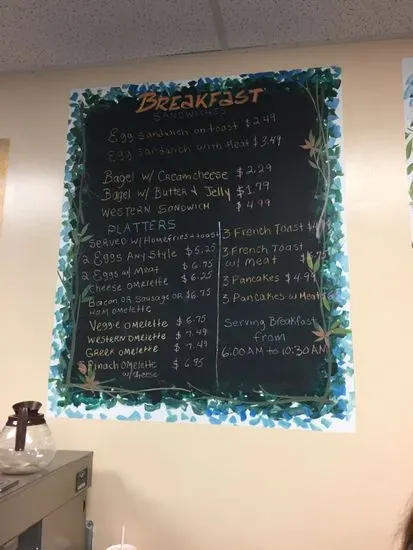 BREAKFAST
SANDWICHES
Egg Sandwich on toast $2.49
Egg Sandwich with Meat $3.49
Bagel w/ Creamcheese $2.29
Bagel w/ Butter + Jelly $1.79
WESTERN SANDWICH $4.99
PLATTERS
SERVED w/ Homefries + toast
2 Eggs Any Style $5.25
2 Eggs w/ Meat $6.75
Cheese omelette $6.25
Bacon OR Sausage OR $6.75
Ham omelette
Veggie omelette $6.75
Western omelette $7.49
Greek omelette $7.49
Spinach omelette $6.95
w/ cheese
3 French Toast
3 French Toast
w/ Meat
3 Pancakes $4.9
3 Pancakes w/ Meat
Serving Breakfast
from
6:00 AM to 10:30 AM